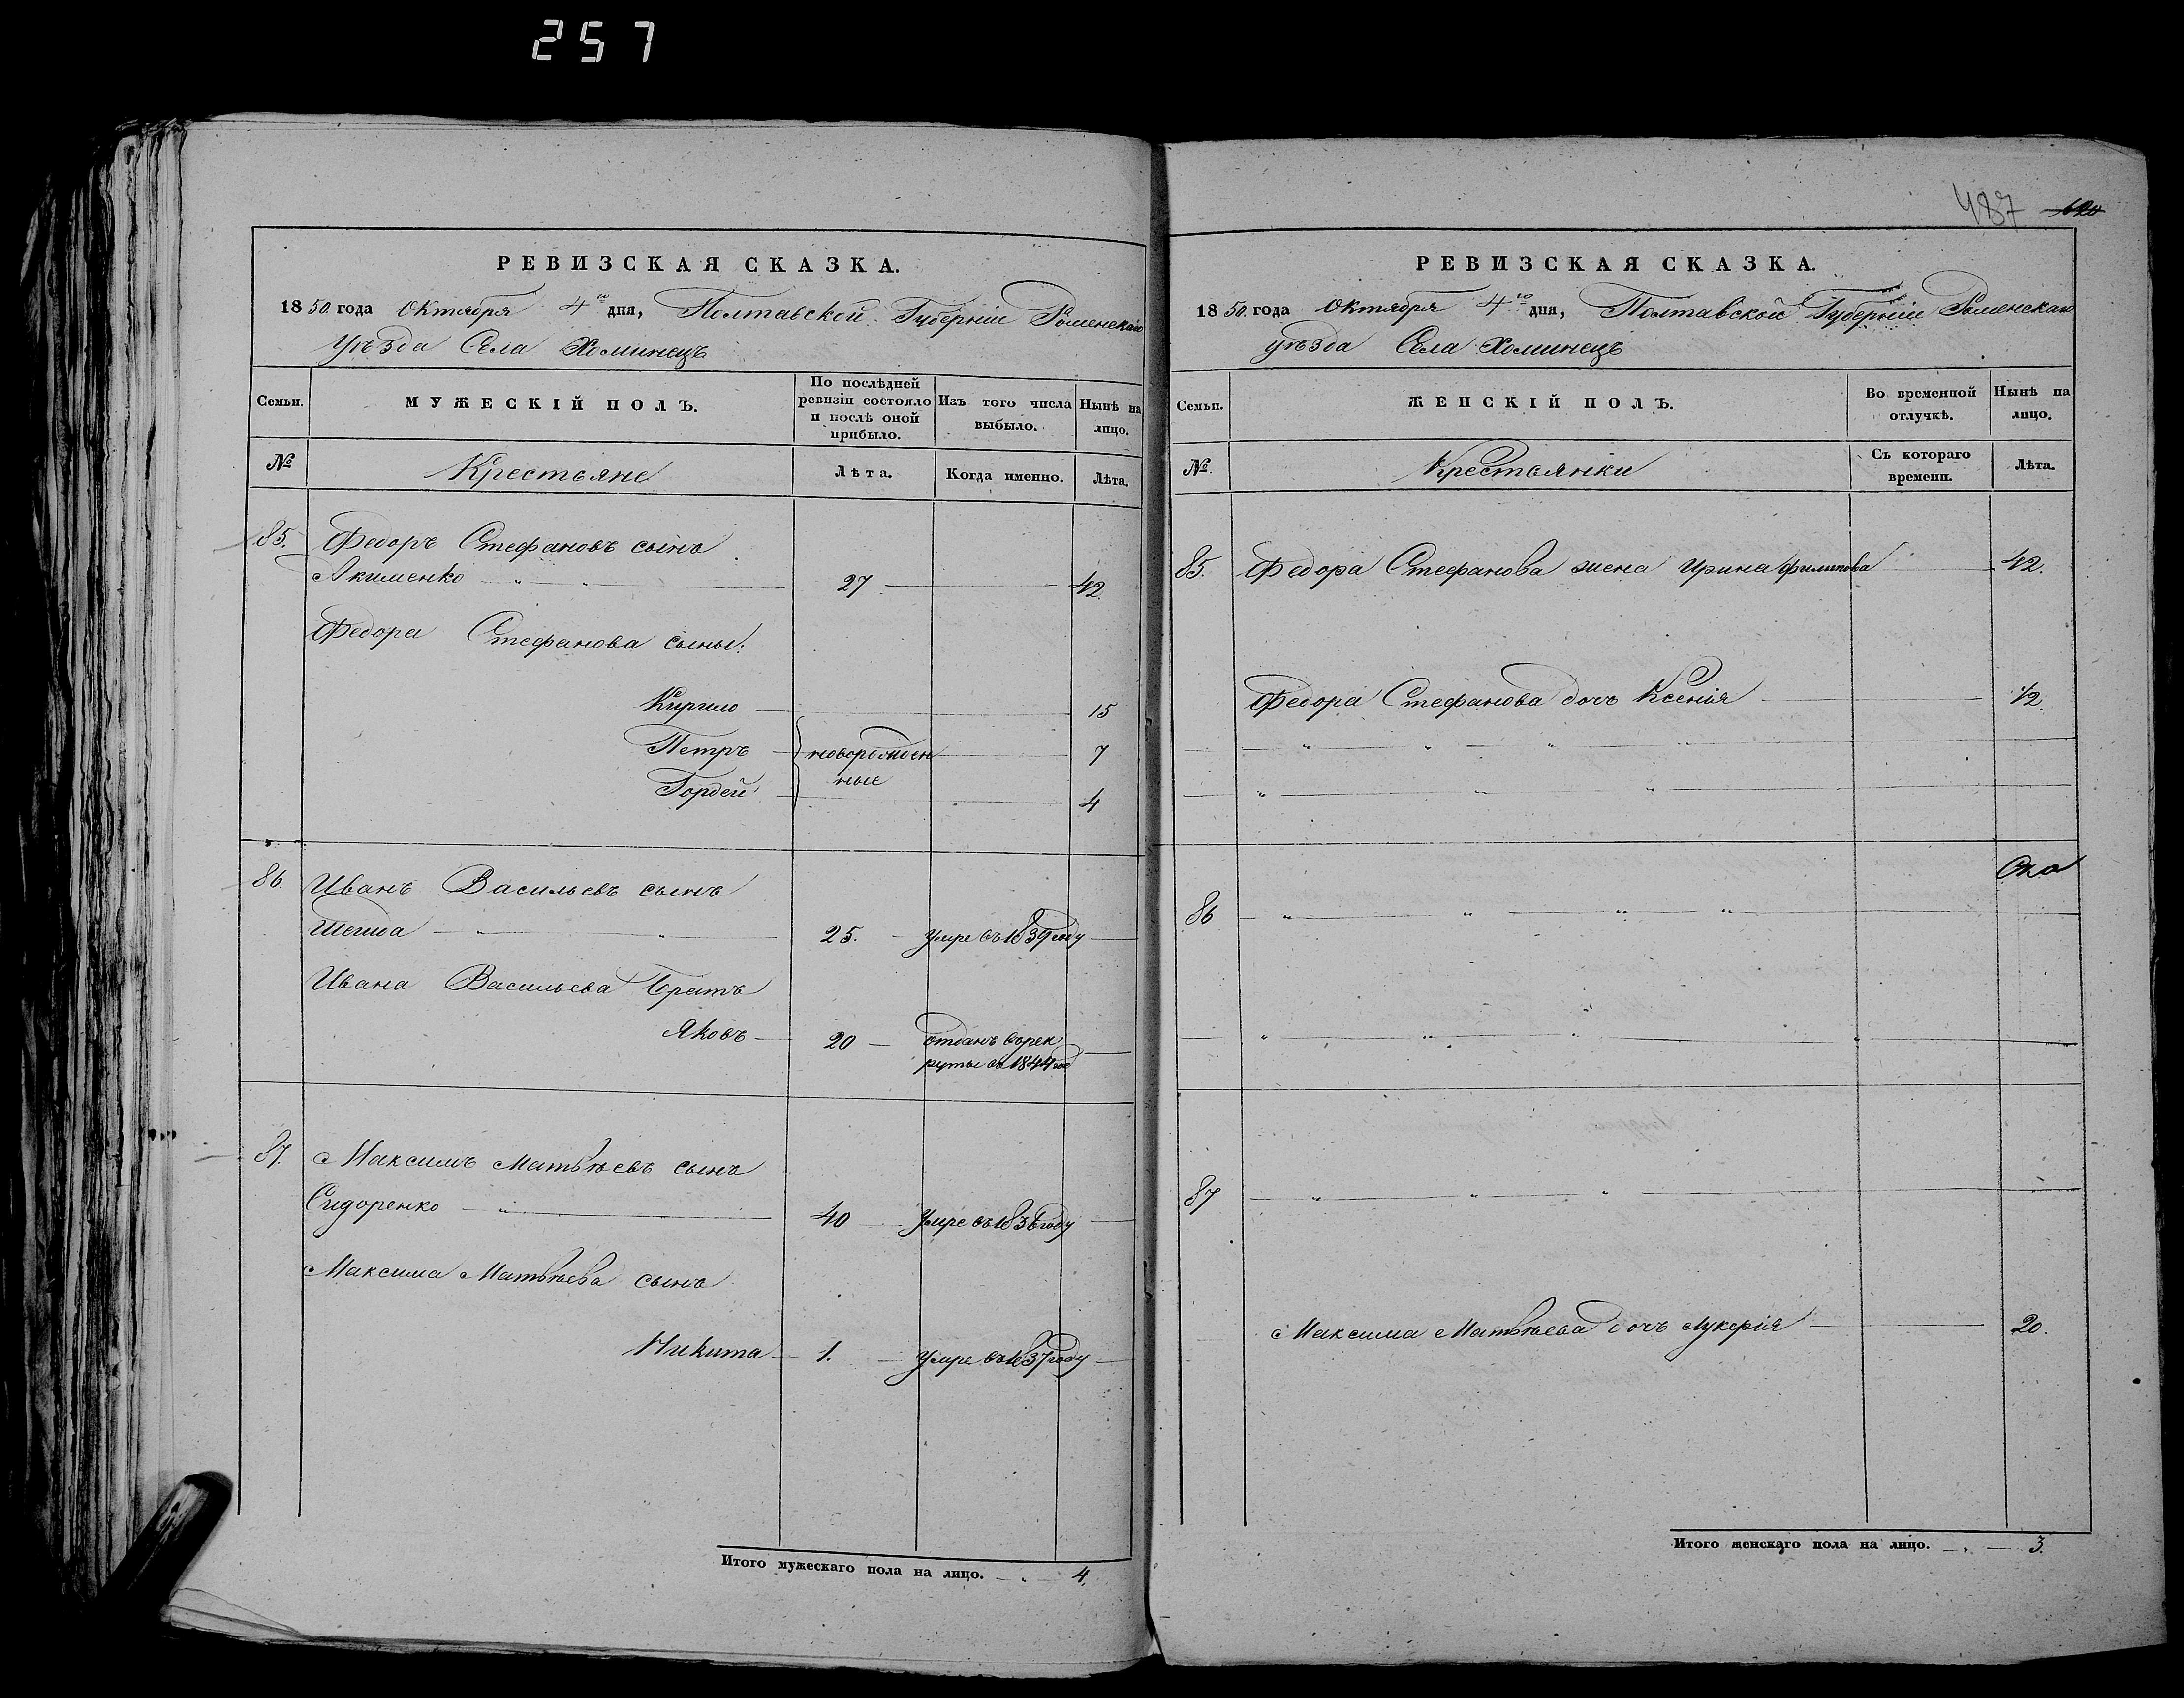 257
РЕВИЗСКАЯ СКАЗКА.
1850 года Октября 4го дня, Полтавской Губерніи Роменскаго
Уѣзда Села Хоминецъ
Семьи.
МУЖЕСКІЙ ПОЛЪ.
По послѣдней ревизіи состояло и послѣ оной прибыло.
Изъ того числа выбыло.
Нынѣ на лицо.
№
Крестьяне
Лѣта.
Когда именно.
Лѣта.
85. Федоръ Стефановъ сынъ
Якименко 27 42.
Федора Стефанова сыны:
Кирило 15
Петръ новорожден 7
ные
Гордей 4
86. Иванъ Васильевъ сынъ
25. умре въ 1839 году
Ивана Васильева братъ
Яковъ 20 отданъ в рек
руты въ 1844 год
87. Максимъ Матвѣевъ сынъ
Сидоренко 40 умре въ 1836 году
Максима Матвѣева сынъ
Никита 1. умре въ 1837 году
Итого мужескаго пола на лицо. 4.
487 620
РЕВИЗСКАЯ СКАЗКА.
1850 года Октября 4го дня, Полтавской Губерніи Роменскаго
уѣзда Села Хоминецъ
Семьи.
ЖЕНСКІЙ ПОЛЪ.
Во временной отлучкѣ.
Нынѣ на лицо.
№.
Крестьянки
Съ котораго времени.
Лѣта.
85. Федора Стефанова жена Ирина Филипова 42.
Федора Стефанова дочь Ксенія 12.
86
87
Максима Матвѣева дочь Лукерія 20.
Итого женскаго пола на лицо. 3.